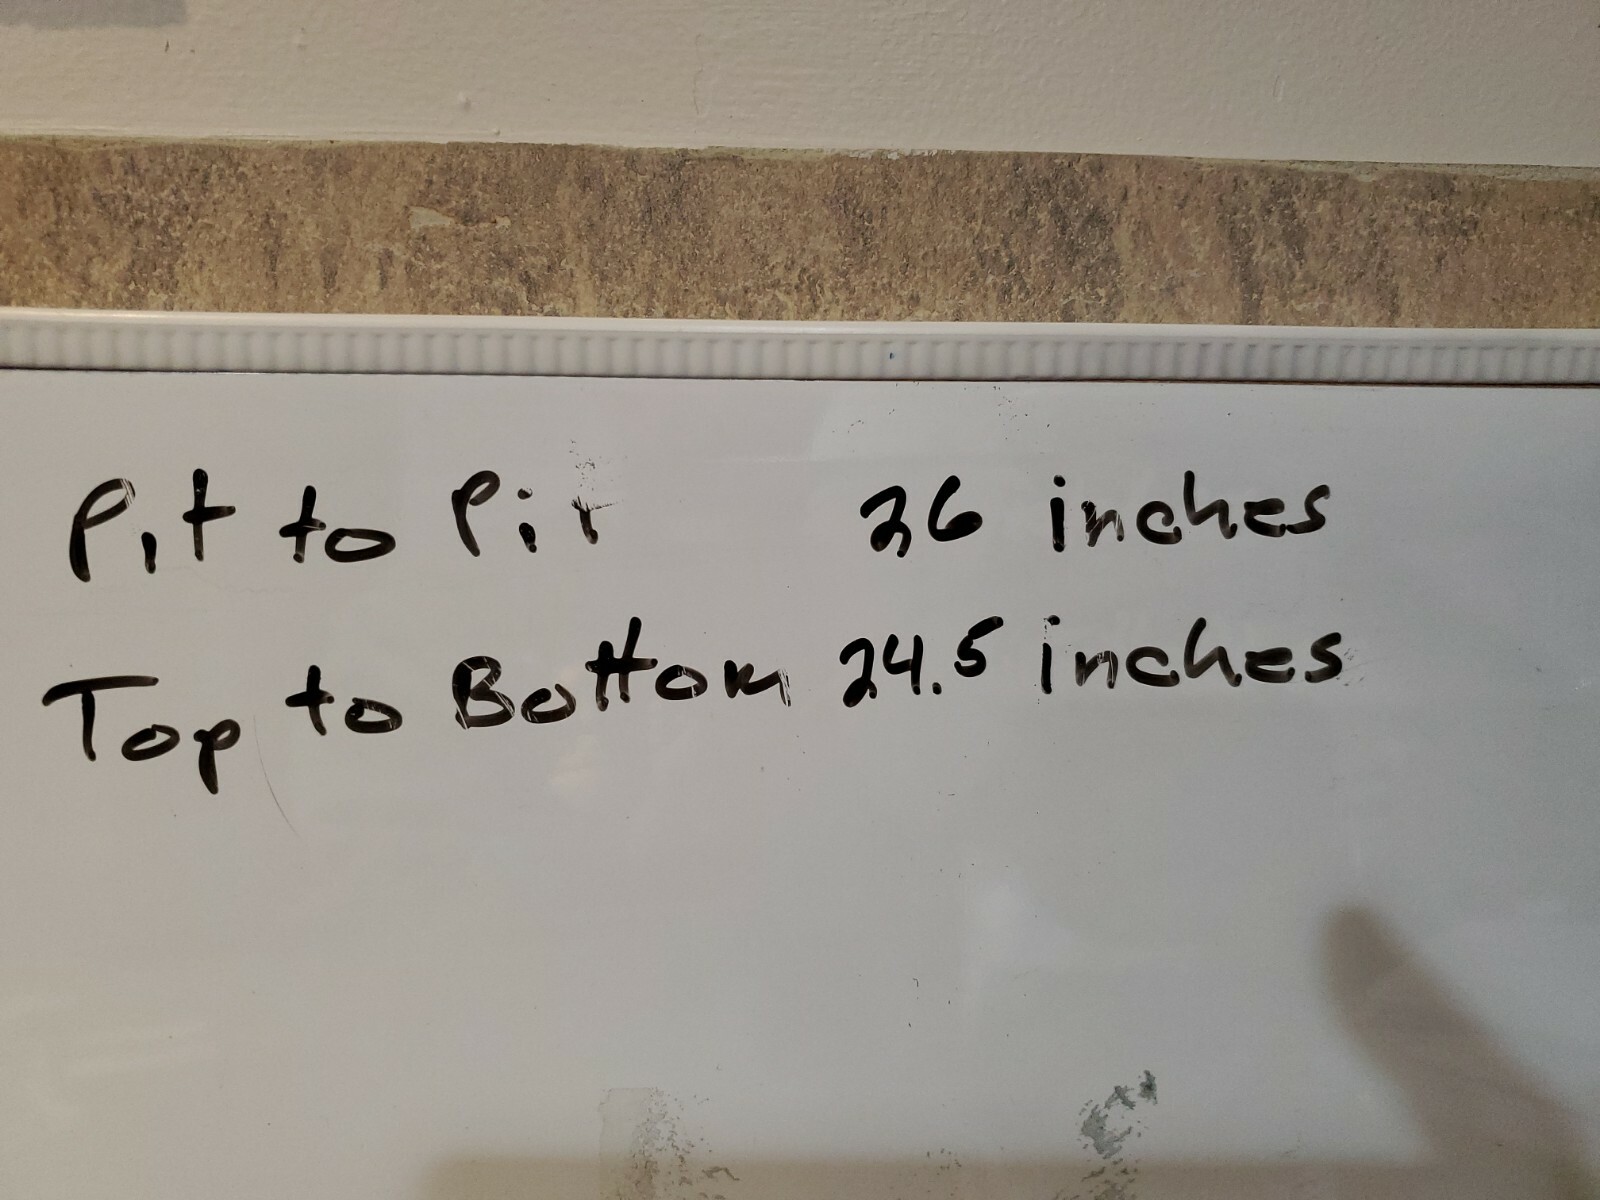 Pit to Pit 26 inches
Top to Bottom 24.5 inches